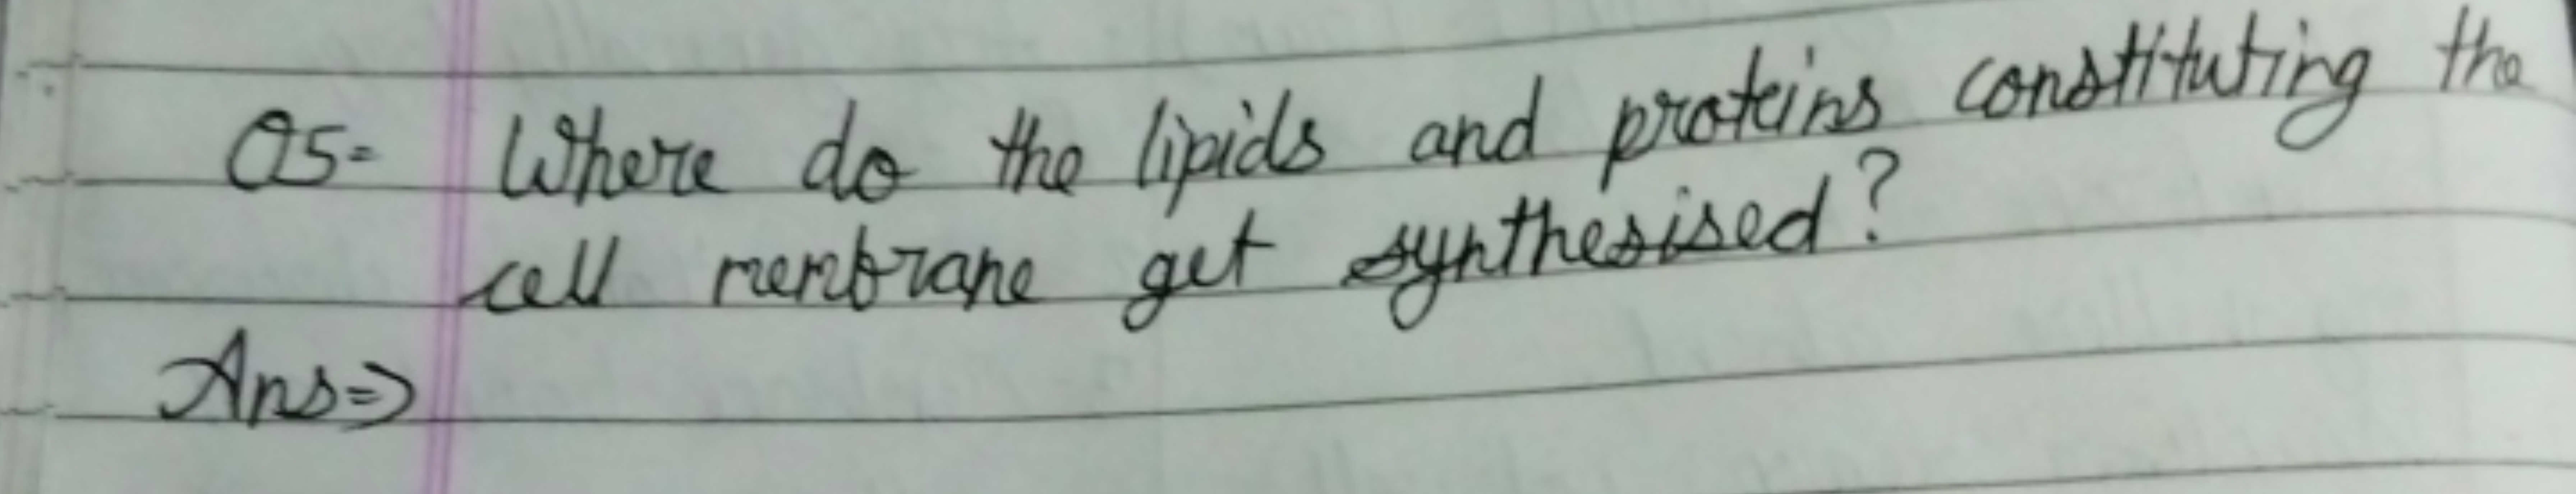 Q5= Where do the lipids and proteins constituting the
cell menbrane get synthesised?
Ans=>